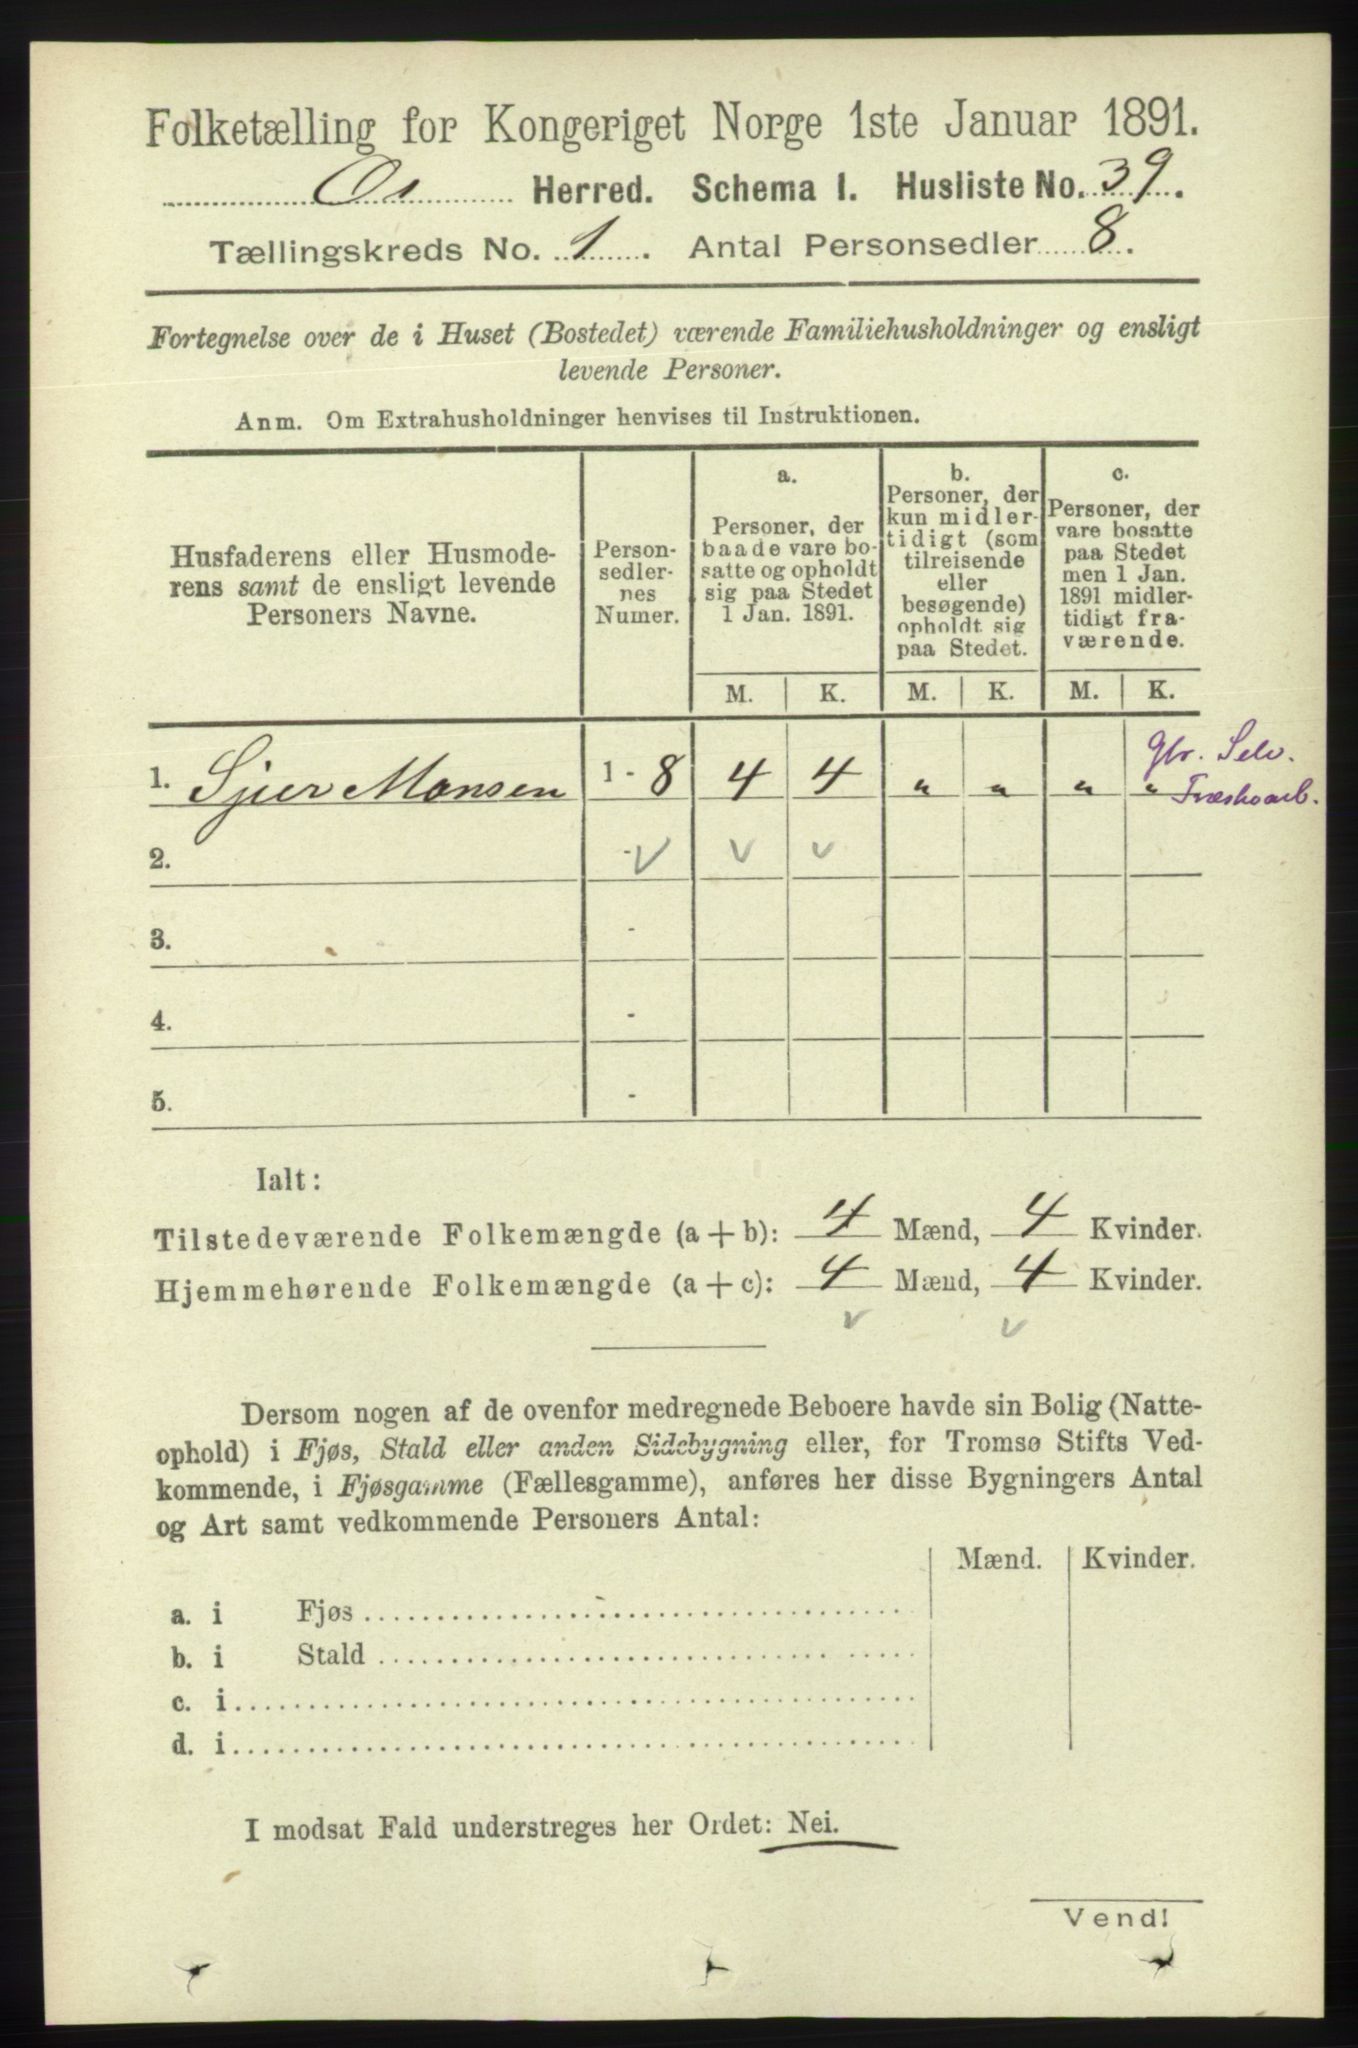 Folketælling for Kongeriget Norge 1ste Januar 1891.
Os Herred. Schema I. Husliste No. 39.
Tællingskreds No. 1. Antal Personsedler 8.
Fortegnelse over de i Huset (Bostedet) værende Familiehusholdninger og ensligt
levende Personer.
Anm. Om Extrahusholdninger henvises til Instruktionen.
Husfaderens eller Husmode-
rens samt de ensligt levende
Personers Navne.
Person-
sedler-
nes
Numer.
a.
Personer, der
baade vare bo-
satte og opholdt
sig paa Stedet
1 Jan. 1891.
b.
Personer, der
kun midler-
tidigt (som
tilreisende
eller
besøgende)
opholdt sig
paa Stedet.
c.
Personer, der
vare bosatte
paa Stedet
men 1 Jan.
1891 midler-
tidigt fra-
værende.
M. K. M. K. M. K.
Gbr. Selv.
1. Sjur Monsen 1 - 8 4 4 " " " " Træskoarb.
2. - v v v
3. -
4. -
5. -
Ialt:
Tilstedeværende Folkemængde (a + b): 4 Mænd, 4 Kvinder.
Hjemmehørende Folkemængde (a + c): 4 Mænd, 4 Kvinder.
v v
Dersom nogen af de ovenfor medregnede Beboere havde sin Bolig (Natte-
ophold) i Fjøs, Stald eller anden Sidebygning eller, for Tromsø Stifts Ved-
kommende, i Fjøsgamme (Fællesgamme), anføres her disse Bygningers Antal
og Art samt vedkommende Personers Antal:
Mænd. Kvinder.
a. i Fjøs
b. i Stald
c. i
d. i
I modsat Fald understreges her Ordet: Nei.
Vend!